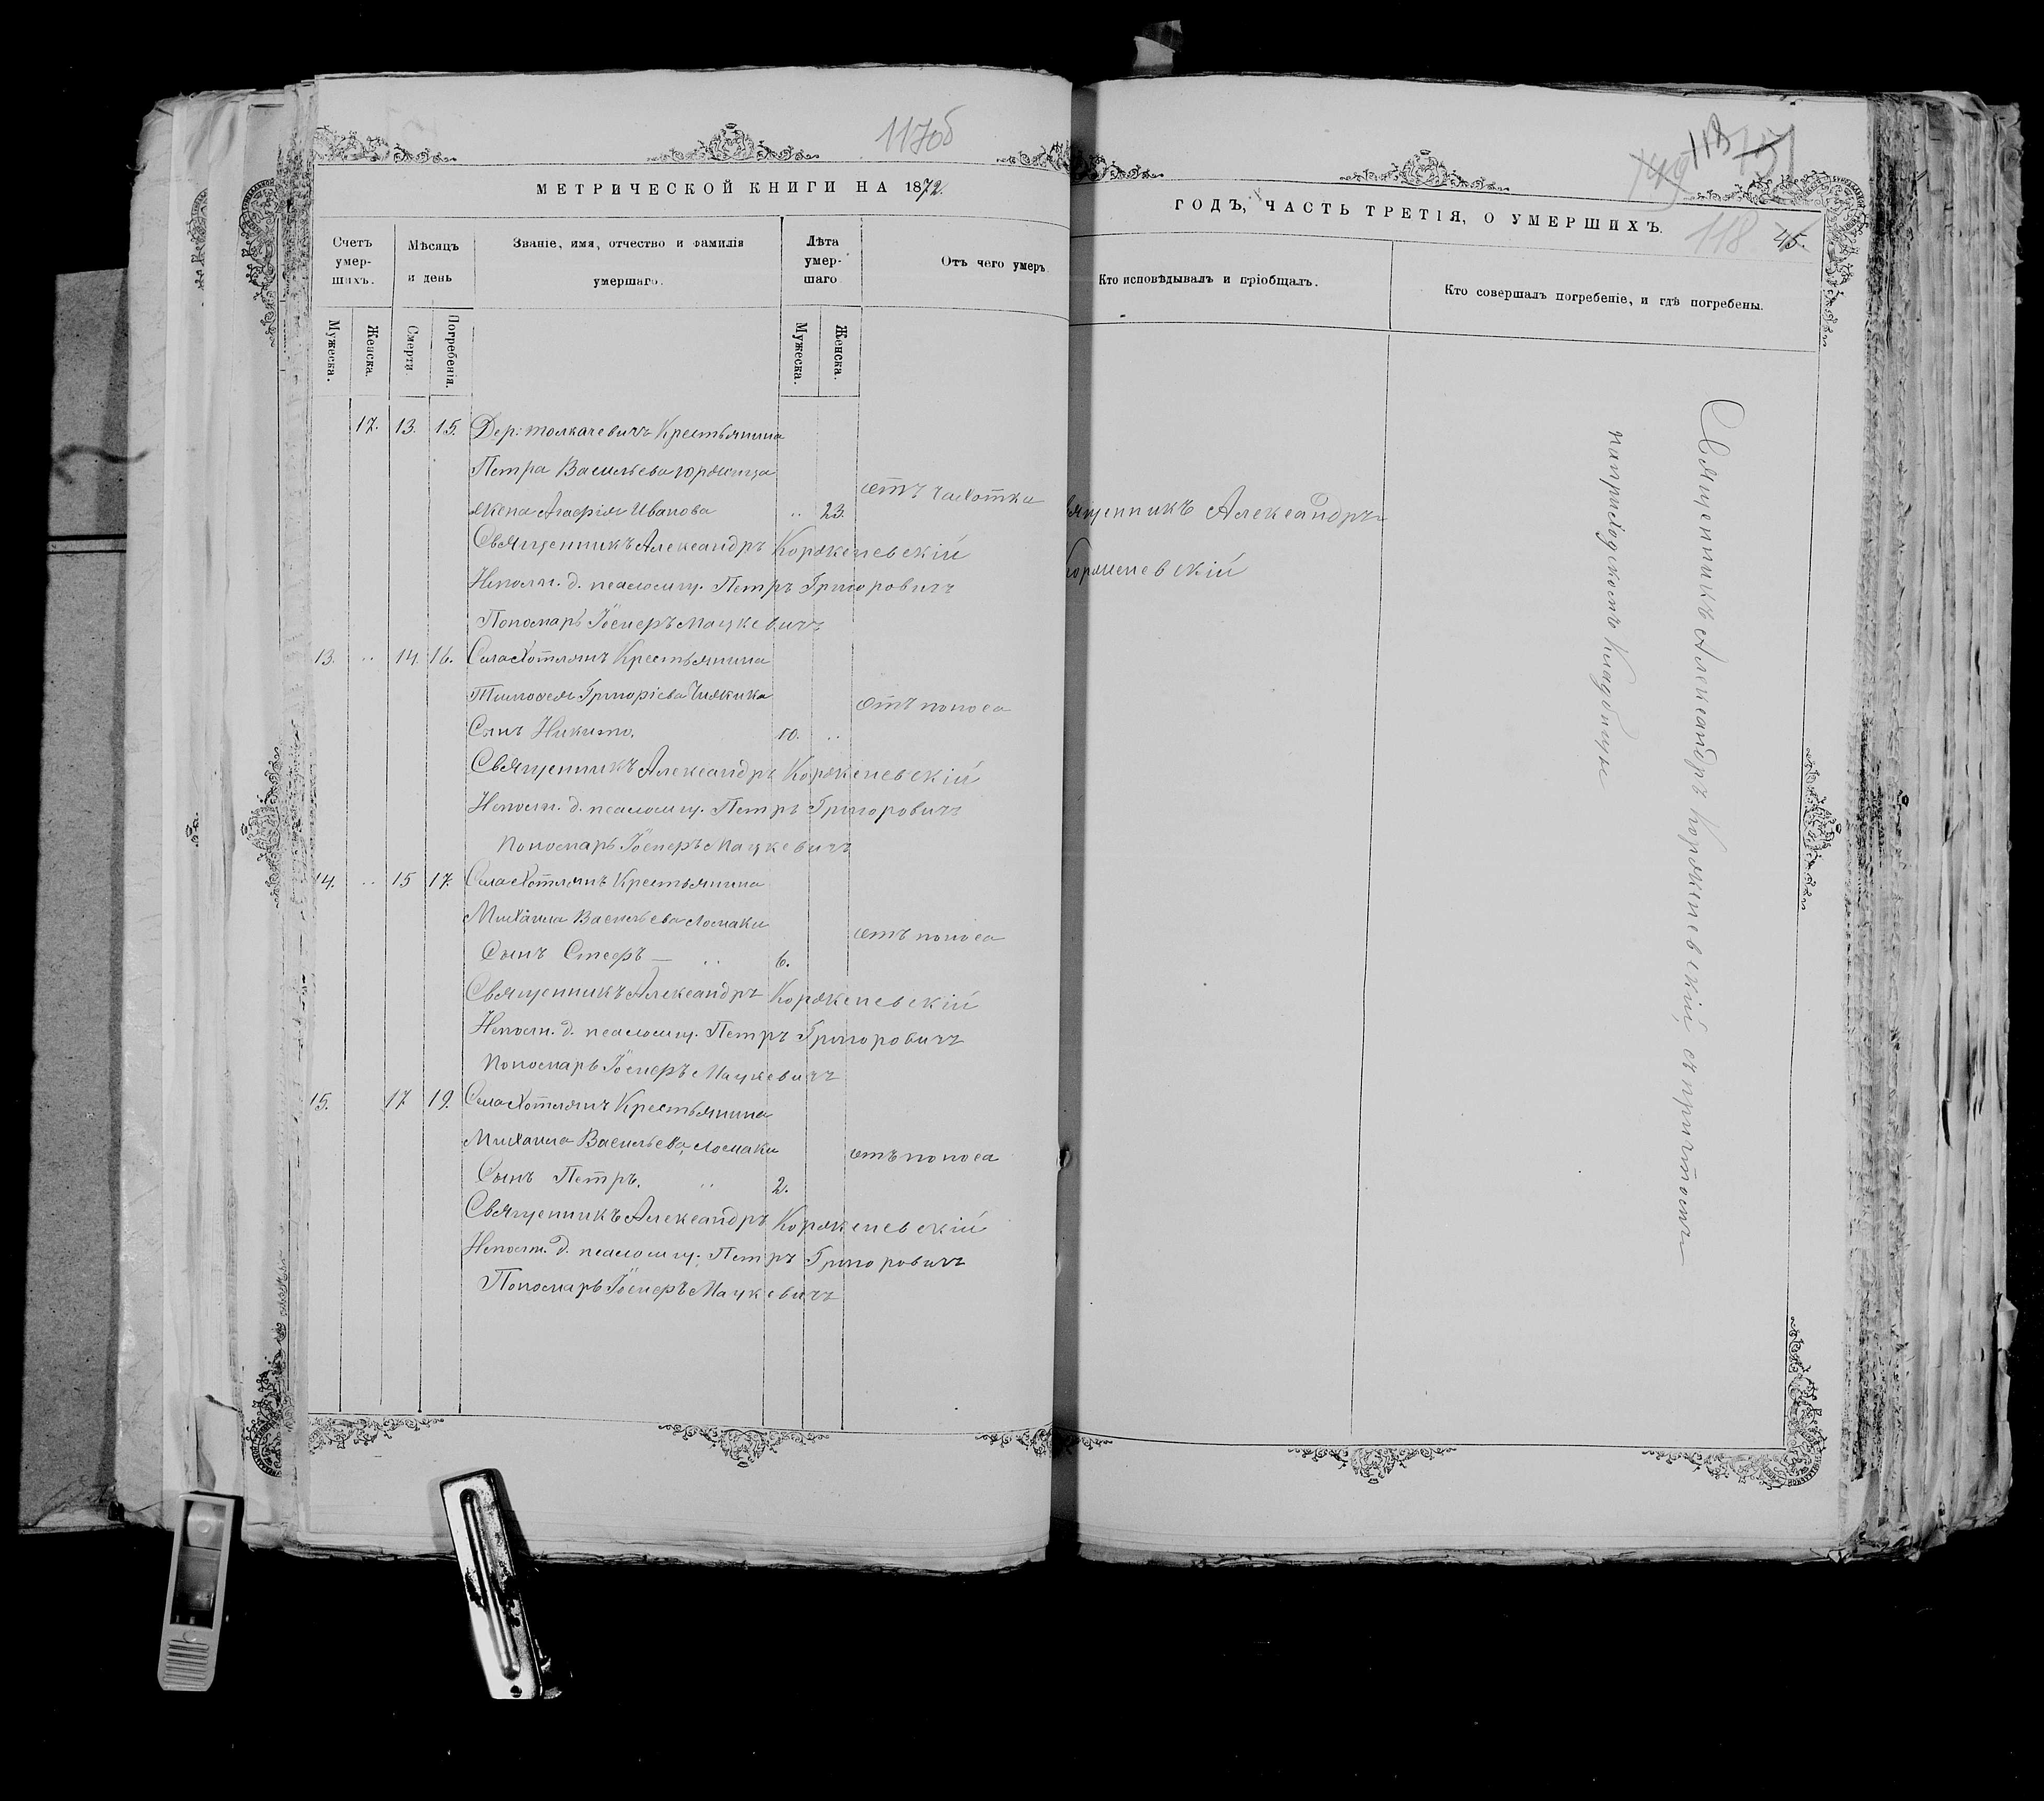 117об
МЕТРИЧЕСКОЙ КНИГИ НА 1872.
Счетъ умер-шихъ.
Мѣсяцъ и день
Званіе, имя, отчество и фамилія умершаго.
Лѣта умер-шаго
Отъ чего умеръ
Мужеска.
Женска.
Смерти.
Погребенія.
Мужеска.
Женска.
17. 13. 15. Дер: Толкачевичъ Крестьянина
Петра Васильева
жена Агафія Иванова „ 23. отъ чахотки
Священникъ Александръ Корженевскій
Исполн. д. псаломщ. Петръ Григоровичъ
Пономарь Іосифъ Мацкевичъ
13. „ 14. 16. Села Хотлянъ Крестьянина
Тимофея Григоріева Чижика
Сынъ Никита. 10. „ отъ поноса
Священникъ Александръ Корженевскій
Исполн. д. псаломщ. Петръ Григоровичъ
Пономарь Іосифъ Мацкевичъ
14. „ 15 17. Села Хотлянъ Крестьянина
Михаила Васильева Ломаки
Сынъ — „ 6. отъ поноса
Священникъ Александръ Корженевскій
Исполн. д. псаломщ. Петръ Григоровичъ
Пономарь Іосифъ Мацкевичъ
15. 17 19. Села Хотлянъ Крестьянина
Михаила Васильева Ломаки
Сынъ Петръ. „ 2. отъ поноса
Священникъ Александръ Корженевскій
Исполн. д. псаломщ. Петръ Григоровичъ
Пономарь Іосифъ Мацкевичъ
149 118 151
ГОДЪ, ЧАСТЬ ТРЕТІЯ, О УМЕРШИХЪ.
118 45.
Кто исповѣдывалъ и пріобщалъ.
Кто совершалъ погребеніе, и гдѣ погребены.
Священникъ Александръ
Корженевскій
Священникъ Александръ Корженевскій, съ причтомъ
на приходскомъ Кладбищѣ